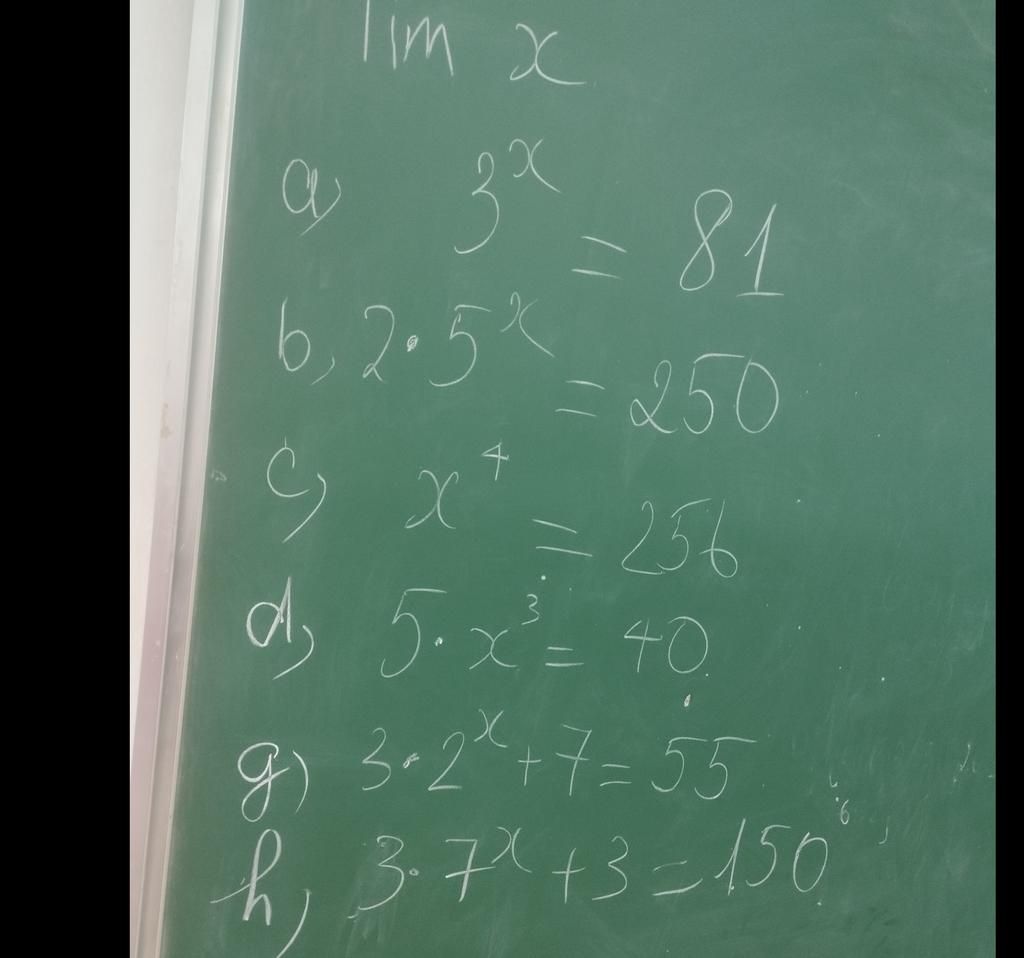 lim x
a, 3^x = 81
b, 2 · 5^x = 250
c, x^4 = 256
d, 5 · x^3 = 40
g) 3 · 2^x + 7 = 55
h, 3 · 7^x + 3 = 150